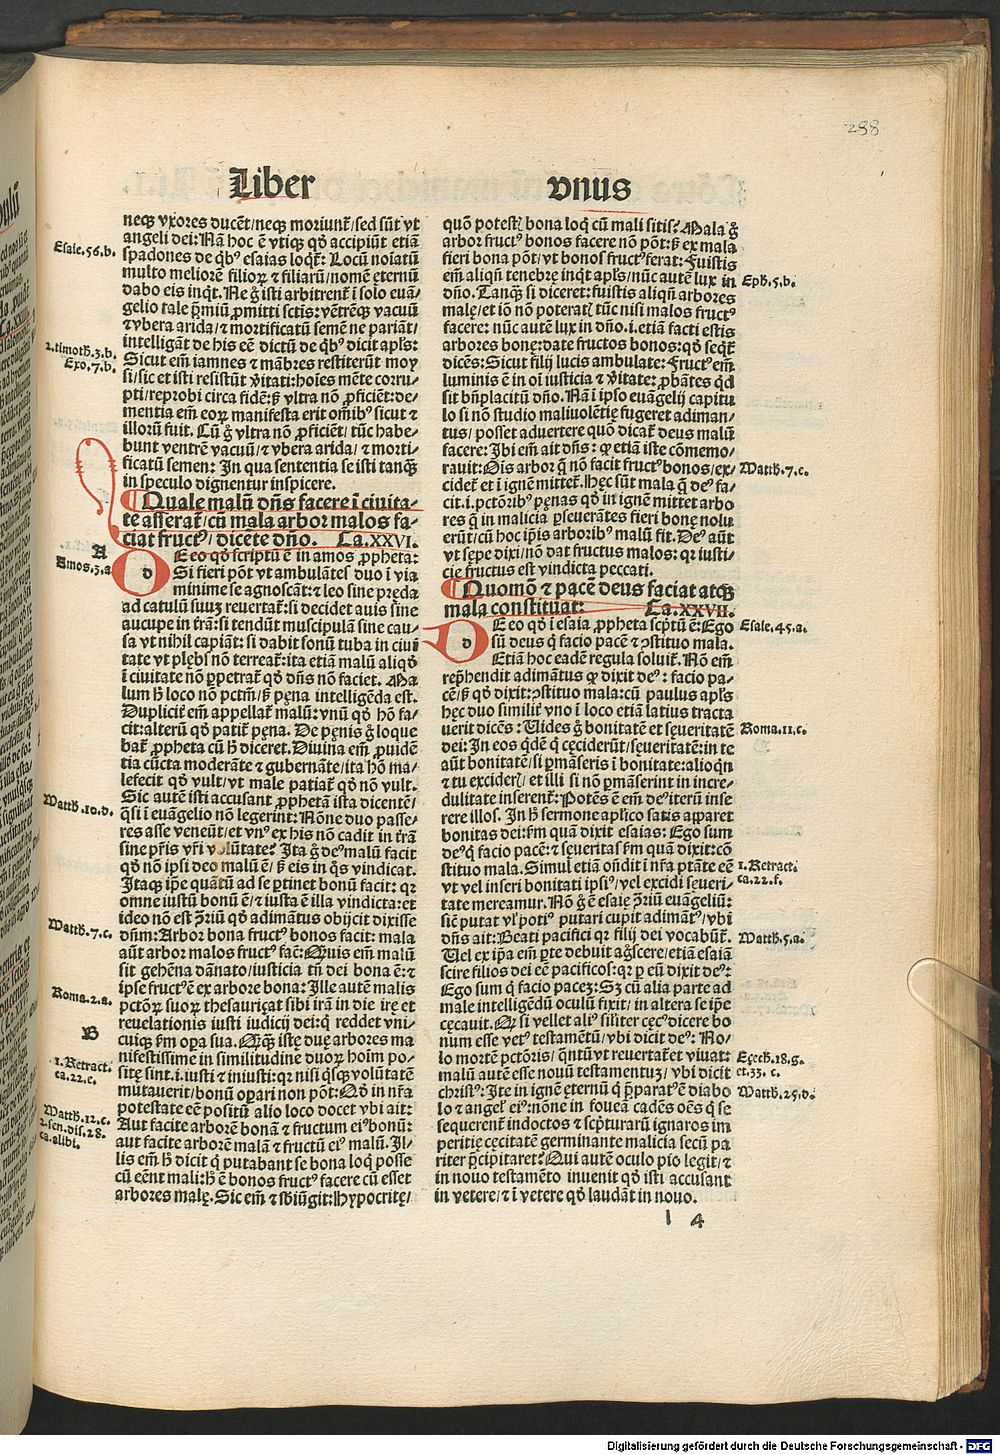 288
Liber vnus
neq; vxores ducēt/neq; moriunt᷑/sed sūt vt
angeli dei: Nā hoc ē vtiq; qđ accipiūt etiā
spadones de qb⁹ esaias loqt᷑: Locū noīatū
multo meliorē filioꝝ ⁊ filiarū/nomē ęternū
dabo eis inqt. Ne g̊ isti arbitrent᷑ ī solo euā-
gelio tale p̄miū ꝓmitti sctīs: vētrēq; vacuū
⁊ vbera arida/⁊ mortificatū semē ne pariāt/
intelligāt de his eē dictū de qb⁹ dicit apl's:
Sicut em̄ iamnes ⁊ mābres restiterūt moy
si/sic et isti resistūt v̄itati: hoīes mēte corru-
pti/reprobi circa fidē: ß vltra nō ꝓficiēt: de-
mentia em̄ eoꝝ manifesta erit om̄ib⁹ sicut ⁊
illorū fuit. Cū g̊ vltra nō ꝓficiēt/tūc habe-
bunt ventrē vacuū/⁊ vbera arida/⁊ morti-
ficatū semen: In qua sententia se isti tanq̄
in speculo dignentur inspicere.
¶ Quale malū dn̄s facere ī ciuita-
te asserat᷑/cū mala arbor malos fa-
ciat fruct⁹/dicēte dn̄o. Ca.XXVI.
DE eo qđ scriptū ē in amos ꝓpheta:
Si fieri pōt vt ambulātes duo ī via
minime se agnoscāt: ⁊ leo sine preda
ad catulū suuꝫ reuertat᷑: si decidet auis sine
aucupe in tr̄ā: si tendūt muscipulā sine cau-
sa vt nihil capiāt: si dabit sonū tuba in ciui
tate vt plębs nō terreat᷑: ita etiā malū aliqđ
ī ciuitate nō ꝑpetrat᷑ qđ dn̄s nō faciet. Ma
lum ħ loco nō pctm̄/ß pęna intelligēda est.
Duplicit᷑ em̄ appellat᷑ malū: vnū qđ hō fa-
cit: alterū qđ patit᷑ pęna. De pęnis g̊ loque
bat᷑ ꝓpheta cū ħ diceret. Diuina em̄ ꝓuidē
tia cūcta moderāte ⁊ gubernāte/ita hō ma-
lefecit qđ vult/vt male patiat᷑ qđ nō vult.
Sic autē isti accusant ꝓphetā ista dicentē/
q̄si ī euāgelio nō legerint: Nōne duo passe-
res asse veneūt/et vn⁹ ex his nō cadit in tr̄ā
sine pr̄is vr̄i volūtate? Ita g̊ de⁹ malū facit
qđ nō ipsi deo malū ē/ß eis in q̄s vindicat.
Itaq; ip̄e quātū ad se ꝑtinet bonū facit: qꝛ
omne iustū bonū ē/⁊ iusta ē illa vindicta: et
ideo nō est ꝯriū qđ adimātus obijcit dixisse
dn̄m: Arbor bona fruct⁹ bonos facit: mala
aūt arbor malos fruct⁹ fac̄: Quis em̄ malū
sit gehēna dānato/iusticia tn̄ dei bona ē: ⁊
ipse fruct⁹ē ex arbore bona: Ille autē malis
pctōꝝ suoꝝ thesauriçat sibi irā in die irę et
reuelationis iusti iudicij dei: q reddet vni-
cuiq; ẜm opa sua. Quāq; istę duę arbores ma
nifestissime in similitudinē duoꝝ hoīm po-
sitę sint .i. iusti ⁊ iniusti: qꝛ nisi qsq; volūtatē
mutauerit/bonū oꝑari non pōt: Qđ in nr̄a
potestate eē positū alio loco docet vbi ait:
Aut facite arborē bonā ⁊ fructum ei⁹ bonū:
aut facite arborē malā ⁊ fructū ei⁹ malū. Il-
lis em̄ ħ dicit q putabant se bona loq posse
cū eēnt mali: ħ ē bonos fruct⁹ facere cū esset
arbores malę. Sic em̄ ⁊ sbiūgit: Hypocritę/
Esaie.56.b.
2.timoth̄.3.b.
Exo.7.b.
A
Amos.3.a
Matth̄.10.d.
Matth̄.7.c.
Roma.2.a.
B
1.Retract.
ca.22.c.
Matth̄.12.c.
2.sen.dis.28.
ca.alibi.
quō potestꝭ bona loq cū mali sitis? Mala g̊
arbor fruct⁹ bonos facere nō pōt: ß ex mala
fieri bona pōt/vt bonos fruct⁹ ferat: Fuistis
em̄ aliqn̄ tenebrę inqt apl's/nūc autē lux in
dn̄o. Tanq̄ si diceret: fuistis aliqn̄ arbores
malę/et iō nō poteratꝭ tūc nisi malos fruct⁹
facere: nūc autē lux in dn̄o .i. etiā facti estis
arbores bonę: date fructos bonos: qđ seqt᷑
dicēs: Sicut filij lucis ambulate: Fruct⁹ em̄
luminis ē in oī iusticia ⁊ v̄itate: ꝓbātes qd
sit bn̄placitū dn̄o. Nā ī ipso euāgelij capitu
lo si nō studio maliuolētię fugeret adiman-
tus/posset aduertere quō dicat᷑ deus malū
facere: Ibi em̄ ait dn̄s: qđ etiā iste cōmemo-
rauit: Ois arbor q̄ nō facit fruct⁹ bonos/ex-
cidet᷑ et ī ignē mittet᷑. Hęc sūt mala q̄ de⁹ fa-
cit .i. pctōrib⁹ pęnas qđ in ignē mittet arbo
res q̄ in malicia ꝑseuerātes fieri bonę nolu
erūt/cū hoc ip̄is arborib⁹ malū sit. De⁹ aūt
vt sępe dixi/nō dat fructus malos: qꝛ iusti-
cię fructus est vindicta peccati.
¶ Quomō ⁊ pacē deus faciat atq;
mala constituat: Ca.XXVII.
DE eo qđ ī esaia ꝓpheta scp̄tū ē: Ego
sū deus q facio pacē ⁊ ꝯstituo mala.
Etiā hoc eadē regula soluit᷑. Nō em̄
rep̄hendit adimātus qđ dixit de⁹: facio pa-
cē/ß qđ dixit: ꝯstituo mala: cū paulus apl's
hęc duo similit᷑ vno ī loco etiā latius tracta
uerit dicēs: Uides g̊ bonitatē et seueritatē
dei: In eos qdē q cęciderūt/seueritatē: in te
aūt bonitatē/si ꝑmāseris ī bonitate: alioqn
⁊ tu excideris/et illi si nō ꝑmāserint in incre-
dulitate inserent᷑: Potēs ē em̄ de⁹ iterū inse
rere illos. In ħ sermone apl'ico satis apparet
bonitas dei: ẜm quā dixit esaias: Ego sum
de⁹ q facio pacē: ⁊ seueritas ẜm quā dixit: cō
stituo mala. Simul etiā on̄dit ī nr̄a p̄tate eē
vt vel inseri bonitati ipsi⁹/vel excidi seueri-
tate mereamur. Nō g̊ ē esaię ꝯriū euāgeliū:
sic̄ putat vl' poti⁹ putari cupit adimāt⁹/vbi
dn̄s ait: Beati pacifici qꝛ filij dei vocabūt᷑.
Uel ex ip̄a em̄ ꝑte debuit ag̊scere/etiā esaiā
scire filios dei eē pacificos: qꝛ ꝑ eū dixit de⁹:
Ego sum q facio paceꝫ: Sꝫ cū alia parte ad
male intelligēdū oculū fixit/in altera se ip̄e
cęcauit. Qꝛ si vellet ali⁹ sil'iter cęc⁹ dicere bo
num esse vet⁹ testamētū/vbi dicit de⁹: No-
lo mortē pctōris/qntū vt reuertat᷑ et viuat:
malū autē esse nouū testamentuꝫ/vbi dicit
christ⁹: Ite in ignē ęternū q p̄parat⁹ē diabo
lo ⁊ angelꝭ ei⁹: nōne in foueā cadēs oēs q se
sequerent᷑ indoctos ⁊ scp̄turarū ignaros im
peritię cęcitatē germinante malicia secū pa
riter p̄cipitaret? Qui autē oculo pio legit/⁊
in nouo testamēto inuenit qđ isti accusant
in vetere/⁊ ī vetere qđ laudāt in nouo.
Eph̄.5.b.
Matth̄.7.c.
Esaie.45.a.
Roma.11.c.
1.Retract.
ca.22.f.
Matth̄.5.a.
Eçech̄.18.g.
et.33.c.
Matth̄.25.d.
l 4
Digitalisierung gefördert durch die Deutsche Forschungsgemeinschaft - DFG